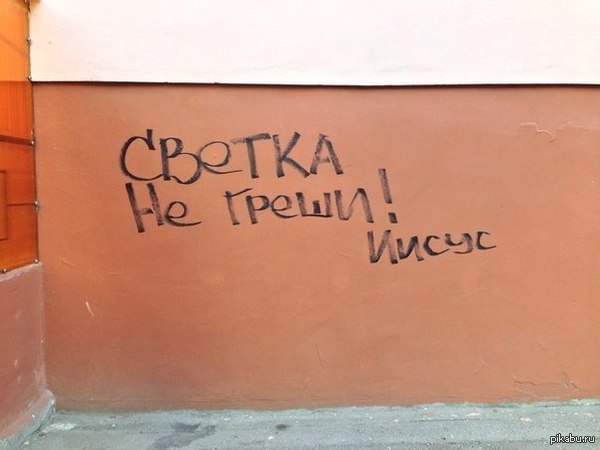 СВеТКА
Не греши!
Иисус
pikabu.ru